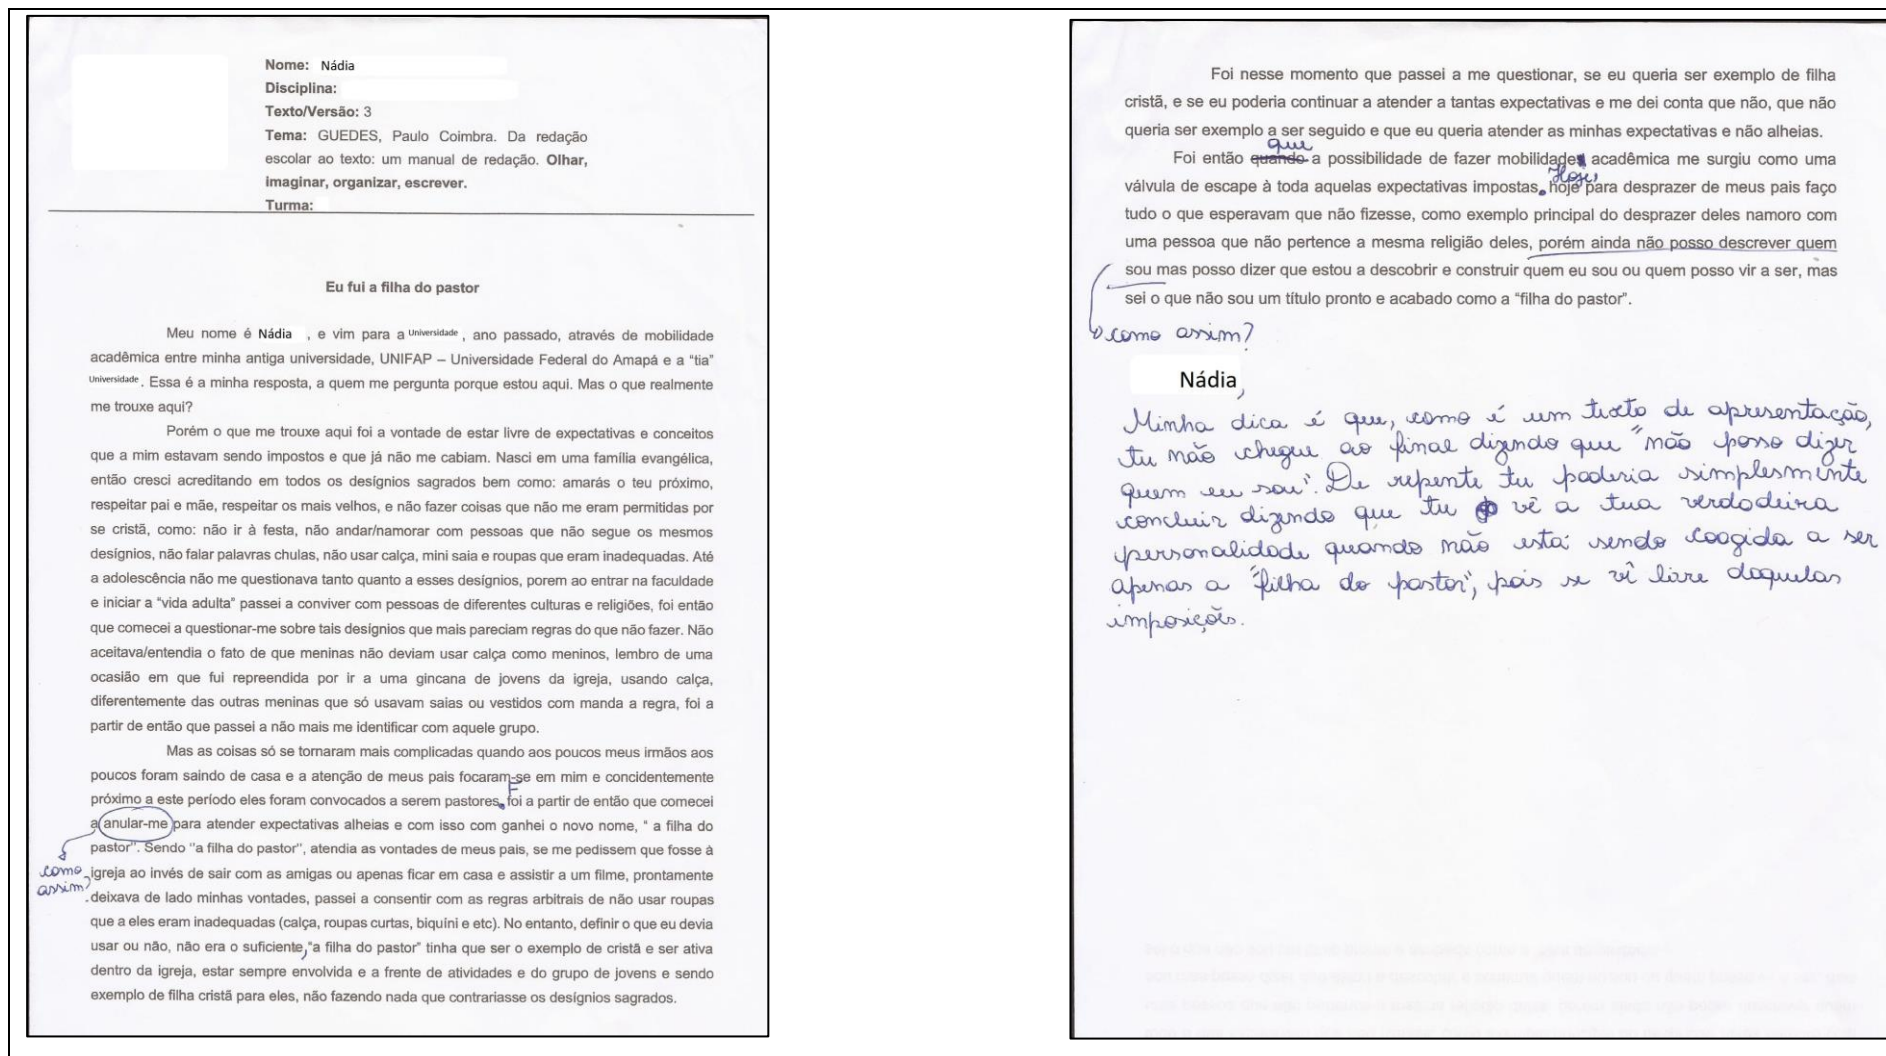 Nome: Nádia
Disciplina:
Texto/Versão: 3
Tema: GUEDES, Paulo Coimbra. Da redação
escolar ao texto: um manual de redação. Olhar,
imaginar, organizar, escrever.
Turma:
Eu fui a filha do pastor
Meu nome é Nádia , e vim para a Universidade , ano passado, através de mobilidade
acadêmica entre minha antiga universidade, UNIFAP – Universidade Federal do Amapá e a “tia”
Universidade . Essa é a minha resposta, a quem me pergunta porque estou aqui. Mas o que realmente
me trouxe aqui?
Porém o que me trouxe aqui foi a vontade de estar livre de expectativas e conceitos
que a mim estavam sendo impostos e que já não me cabiam. Nasci em uma família evangélica,
então cresci acreditando em todos os desígnios sagrados bem como: amarás o teu próximo,
respeitar pai e mãe, respeitar os mais velhos, e não fazer coisas que não me eram permitidas por
se cristã, como: não ir à festa, não andar/namorar com pessoas que não segue os mesmos
desígnios, não falar palavras chulas, não usar calça, mini saia e roupas que eram inadequadas. Até
a adolescência não me questionava tanto quanto a esses desígnios, porem ao entrar na faculdade
e iniciar a “vida adulta” passei a conviver com pessoas de diferentes culturas e religiões, foi então
que comecei a questionar-me sobre tais desígnios que mais pareciam regras do que não fazer. Não
aceitava/entendia o fato de que meninas não deviam usar calça como meninos, lembro de uma
ocasião em que fui repreendida por ir a uma gincana de jovens da igreja, usando calça,
diferentemente das outras meninas que só usavam saias ou vestidos com manda a regra, foi a
partir de então que passei a não mais me identificar com aquele grupo.
Mas as coisas só se tornaram mais complicadas quando aos poucos meus irmãos aos
poucos foram saindo de casa e a atenção de meus pais focaram-se em mim e concidentemente
F
próximo a este período eles foram convocados a serem pastores. foi a partir de então que comecei
a anular-me para atender expectativas alheias e com isso com ganhei o novo nome, “ a filha do
pastor”. Sendo “a filha do pastor”, atendia as vontades de meus pais, se me pedissem que fosse à
como igreja ao invés de sair com as amigas ou apenas ficar em casa e assistir a um filme, prontamente
assim? deixava de lado minhas vontades, passei a consentir com as regras arbitrais de não usar roupas
que a eles eram inadequadas (calça, roupas curtas, biquíni e etc). No entanto, definir o que eu devia
usar ou não, não era o suficiente, “a filha do pastor” tinha que ser o exemplo de cristã e ser ativa
dentro da igreja, estar sempre envolvida e a frente de atividades e do grupo de jovens e sendo
exemplo de filha cristã para eles, não fazendo nada que contrariasse os desígnios sagrados.
Foi nesse momento que passei a me questionar, se eu queria ser exemplo de filha
cristã, e se eu poderia continuar a atender a tantas expectativas e me dei conta que não, que não
queria ser exemplo a ser seguido e que eu queria atender as minhas expectativas e não alheias.
que
Foi então quando a possibilidade de fazer mobilidade acadêmica me surgiu como uma
Hoje,
válvula de escape à toda aquelas expectativas impostas. hoje para desprazer de meus pais faço
tudo o que esperavam que não fizesse, como exemplo principal do desprazer deles namoro com
uma pessoa que não pertence a mesma religião deles, porém ainda não posso descrever quem
sou mas posso dizer que estou a descobrir e construir quem eu sou ou quem posso vir a ser, mas
sei o que não sou um título pronto e acabado como a “filha do pastor”.
como assim?
Nádia,
Minha dica é que, como é um texto de apresentação,
tu não chegue ao final dizendo que "não posso dizer
quem eu sou". De repente tu poderia simplesmente
concluir dizendo que tu vê a tua verdadeira
personalidade quando não está sendo coagida a ser
apenas a "filha do pastor", pois se vê livre daquelas
imposições.